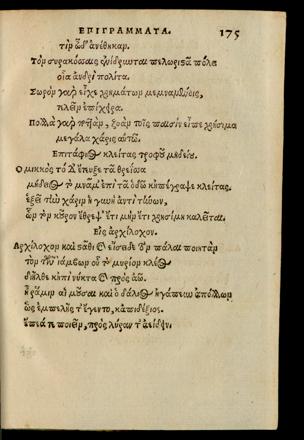 ΕΠΙΓΡΑΜΜΑΤΑ. 175
τὶν ὧδ' ἀνέθηκαν.
Τοὶ συρακόσσαις ἐνίδρυνται πελωρίσᾳ πόλει
οἷα ἀνδρὶ πολίτᾳ.
Σωρὸν γὰρ εἶχε χρημάτων μεμναμένοις,
τελεῖν ἐπίχειρα.
Πολλὰ γὰρ ποττὰν ζωὰν τοῖς παισὶν εἶπε χρήσιμα
μεγάλα χάρις αὐτῷ.
Ἐπιτάφιος κλείτας τροφοῦ μηδείου.
Ὁ μικκὸς τό δ' ἔτευξε τᾷ θρείσσᾳ
μήδειος τὸ μνᾶμ' ἐπὶ τᾷ ὁδῷ κἠπέγραψε κλείτας.
ἑξεῖ τὰν χάριν ἁ γυνὴ ἀντὶ τήνων,
ὧν τὸν κῶρον ἔθρεψ' ἔτι μὴν ἔτι χρησίμη καλεῖται.
Εἰς ἀρχίλοχον.
Ἀρχίλοχον καὶ στᾶθι καὶ εἴσιδε τὸν πάλαι ποιητὰν
τὸν τῶν ἰάμβων οὗ τὸ μυρίον κλέος
διῆλθε κἠπὶ νύκτα καὶ πρὸς ἀῶ.
ἦ ῥά μιν αἱ μοῦσαι καὶ ὁ δάλιος ἠγάπευν ἀπόλλων
ὡς ἐμμελής τ' ἐγένετο, κἀπιδέξιος.
ἔπεά τε ποιεῖν, πρὸς λύραν τ' ἀείδειν.